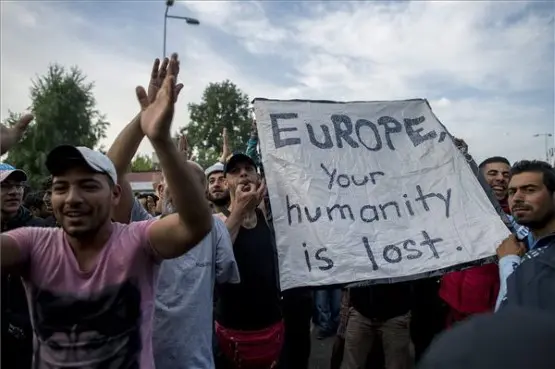 EUROPE,
Your
humanity
is lost.